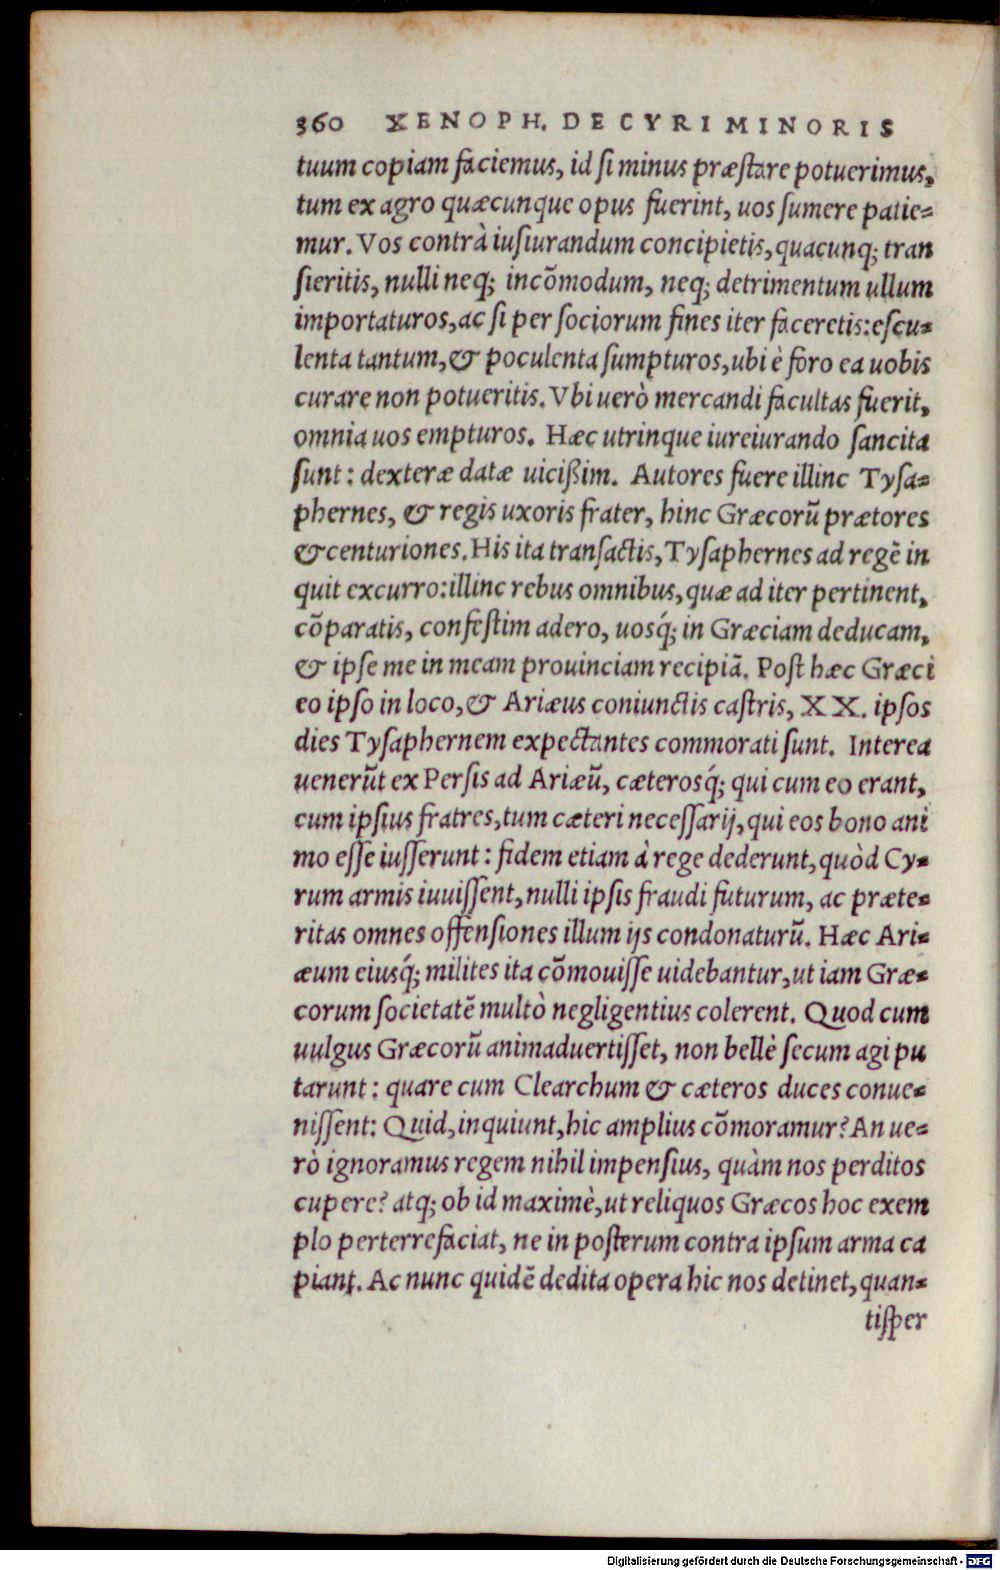 360 XENOPH. DE CYRI MINORIS
tuum copiam faciemus, id si minus præstare potuerimus,
tum ex agro quæcunque opus fuerint, uos sumere patie=
mur. Vos contrà iusiurandum concipietis, quacunq; tran
sieritis, nulli neq; incōmodum, neq; detrimentum ullum
importaturos, ac si per sociorum fines iter faceretis: escu=
lenta tantum, & poculenta sumpturos, ubi è foro ea uobis
curare non potueritis. Vbi uerò mercandi facultas fuerit,
omnia uos empturos. Hæc utrinque iureiurando sancita
sunt: dexteræ datæ uicißim. Autores fuere illinc Tysa=
phernes, & regis uxoris frater, hinc Græcorū prætores
& centuriones. His ita transactis, Tysaphernes ad regē in
quit excurro: illinc rebus omnibus, quæ ad iter pertinent,
cōparatis, confestim adero, uosq́; in Græciam deducam,
& ipse me in meam prouinciam recipiā. Post hæc Græci
eo ipso in loco, & Ariæus coniunctis castris, XX. ipsos
dies Tysaphernem expectantes commorati sunt. Interea
uenerūt ex Persis ad Ariæū, cæterosq́; qui cum eo erant,
cum ipsius fratres, tum cæteri necessarij, qui eos bono ani
mo esse iusserunt: fidem etiam à rege dederunt, quòd Cy=
rum armis iuuissent, nulli ipsis fraudi futurum, ac præte=
ritas omnes offensiones illum ijs condonaturū. Hæc Ari=
æum eiusq́; milites ita cōmouisse uidebantur, ut iam Græ=
corum societatē multò negligentius colerent. Quod cum
uulgus Græcorū animaduertisset, non bellè secum agi pu
tarunt: quare cum Clearchum & cæteros duces conue=
nissent: Quid, inquiunt, hic amplius cōmoramur? An ue=
rò ignoramus regem nihil impensius, quàm nos perditos
cupere? atq; ob id maximè, ut reliquos Græcos hoc exem
plo perterrefaciat, ne in posterum contra ipsum arma ca
piant. Ac nunc quidē dedita opera hic nos detinet, quan=
tisper
Digitalisierung gefördert durch die Deutsche Forschungsgemeinschaft - DFG